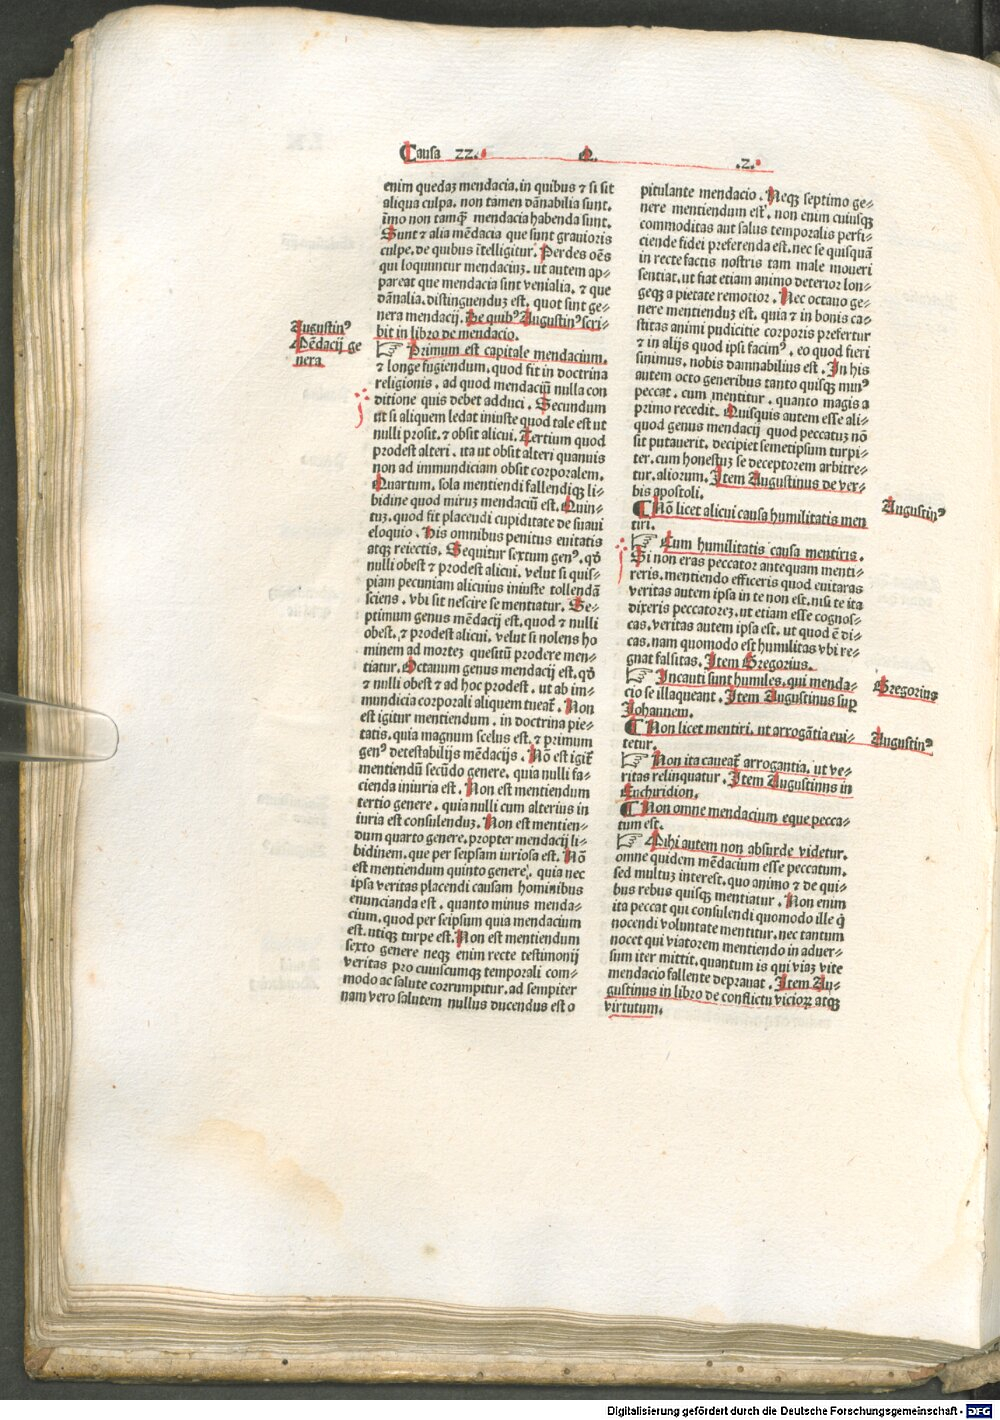 Causa 22. Q. .2.
enim quedaꝫ mendacia, in quibus ⁊ si sit
aliqua culpa, non tamen dānabilia sunt,
īmo non tamꝙ̄ mendacia habenda sunt.
Sunt ⁊ alia mēdacia que sunt grauioris
culpe, de quibus ītelligitur. Perdes oēs
qui loquuntur mendaciuꝫ, ut autem ap-
pareat que mendacia sint venialia, ⁊ que
dānalia, distinguenduꝫ est, quot sint ge-
nera mendacij. De quibꝰ Augustinꝰ scri-
bit in libro de mendacio.
Augustinꝰ
Mēdacij ge
nera
Primum est capitale mendacium,
⁊ longe fugiendum, quod fit in doctrina
religionis, ad quod mendaciū nulla con
ditione quis debet adduci. Secundum
ut si aliquem ledat iniuste quod tale est ut
nulli prosit, ⁊ obsit alicui. Tertium quod
prodest alteri, ita ut obsit alteri quamuis
non ad immundiciam obsit corporalem.
Quartum, sola mentiendi fallendiqꝫ li-
bidine quod miruꝫ mendaciū est. Quin-
tuꝫ, quod fit placendi cupiditate de suaui
eloquio. His omnibus penitus euitatis
atqꝫ reiectis. Sequitur sextum genꝰ, qđ
nulli obest ⁊ prodest alicui, velut si quis-
piam pecuniam alicuius iniuste tollendā
sciens, vbi sit nescire se mentiatur. Se-
ptimum genus mēdacij est, quod ⁊ nulli
obest, ⁊ prodest alicui, velut si nolens ho
minem ad morteꝫ quesitū prodere men-
tiatur. Octauum genus mendacij est, qđ
⁊ nulli obest ⁊ ad hoc prodest, ut ab im-
mundicia corporali aliquem tueat᷑. Non
est igitur mentiendum, in doctrina pie-
tatis, quia magnum scelus est, ⁊ primum
genꝰ detestabilijs mēdacijs. Nō est igit᷑
mentiendū secūdo genere, quia nulli fa-
cienda iniuria est. Non est mentiendum
tertio genere, quia nulli cum alterius in
iuria est consulenduꝫ. Non est mentien-
dum quarto genere, propter mendacij li-
bidinem, que per seipsam iuriosa est. Nō
est mentiendum quinto genere, quia nec
ipsa veritas placendi causam hominibus
enuncianda est, quanto minus menda-
cium, quod per seipsum quia mendacium
est, utiqꝫ turpe est. Non est mentiendum
sexto genere neqꝫ enim recte testimonij
veritas pro cuiuscumqꝫ temporali com-
modo ac salute corrumpitur, ad sempiter
nam vero salutem nullus ducendus est o
pitulante mendacio. Neqꝫ septimo ge-
nere mentiendum est, non enim cuiusqꝫ
commoditas aut salus temporalis perfi-
ciende fidei preferenda est, nec se quisquā
in recte factis nostris tam male moueri
sentiat, ut fiat etiam animo deterior lon-
geqꝫ a pietate remotior. Nec octauo ge-
nere mentienduꝫ est, quia ⁊ in bonis ca-
stitas animi pudicitie corporis prefertur
⁊ in alijs quod ipsi facimꝰ, eo quod fieri
sinimus, nobis damnabilius est. In his
autem octo generibus tanto quisqꝫ minꝰ
peccat, cum mentitur, quanto magis a
primo recedit. Quisquis autem esse ali-
quod genus mendacij quod peccatuꝫ nō
sit putauerit, decipiet semetipsum turpi-
ter, cum honestuꝫ se deceptorem arbitre-
tur, aliorum. Item Augustinus de ver-
bis apostoli.
Augustinꝰ
¶ Nō licet alicui causa humilitatis men
tiri.
Cum humilitatis causa mentiris.
Si non eras peccator antequam menti-
reris, mentiendo efficeris quod euitaras
veritas autem ipsa in te non est, nisi te ita
dixeris peccatoreꝫ, ut etiam esse cognos-
cas, veritas autem ipsa est, ut quod ē di-
cas, nam quomodo est humilitas vbi re-
gnat falsitas. Item Gregorius.
Gregorius
Incauti sunt humiles, qui menda-
cio se illaqueant. Item Augustinus suꝑ
Johannem.
Augustinꝰ
¶ Non licet mentiri, ut arrogātia eui-
tetur.
Non ita caueat᷑ arrogantia, ut ve-
ritas relinquatur. Item Augustinus in
Enchiridion.
¶ Non omne mendacium eque pecca-
tum est.
Mihi autem non absurde videtur,
omne quidem mēdacium esse peccatum,
sed multuꝫ interest, quo animo ⁊ de qui-
bus rebus quisqꝫ mentiatur. Non enim
ita peccat qui consulendi quomodo ille q̇
nocendi voluntate mentitur, nec tantum
nocet qui viatorem mentiendo in aduer-
sum iter mittit, quantum is qui viaꝫ vite
mendacio fallente deprauat. Item Au-
gustinus in libro de conflictu vicioꝝ atqꝫ
virtutum.
Digitalisierung gefördert durch die Deutsche Forschungsgemeinschaft - DFG